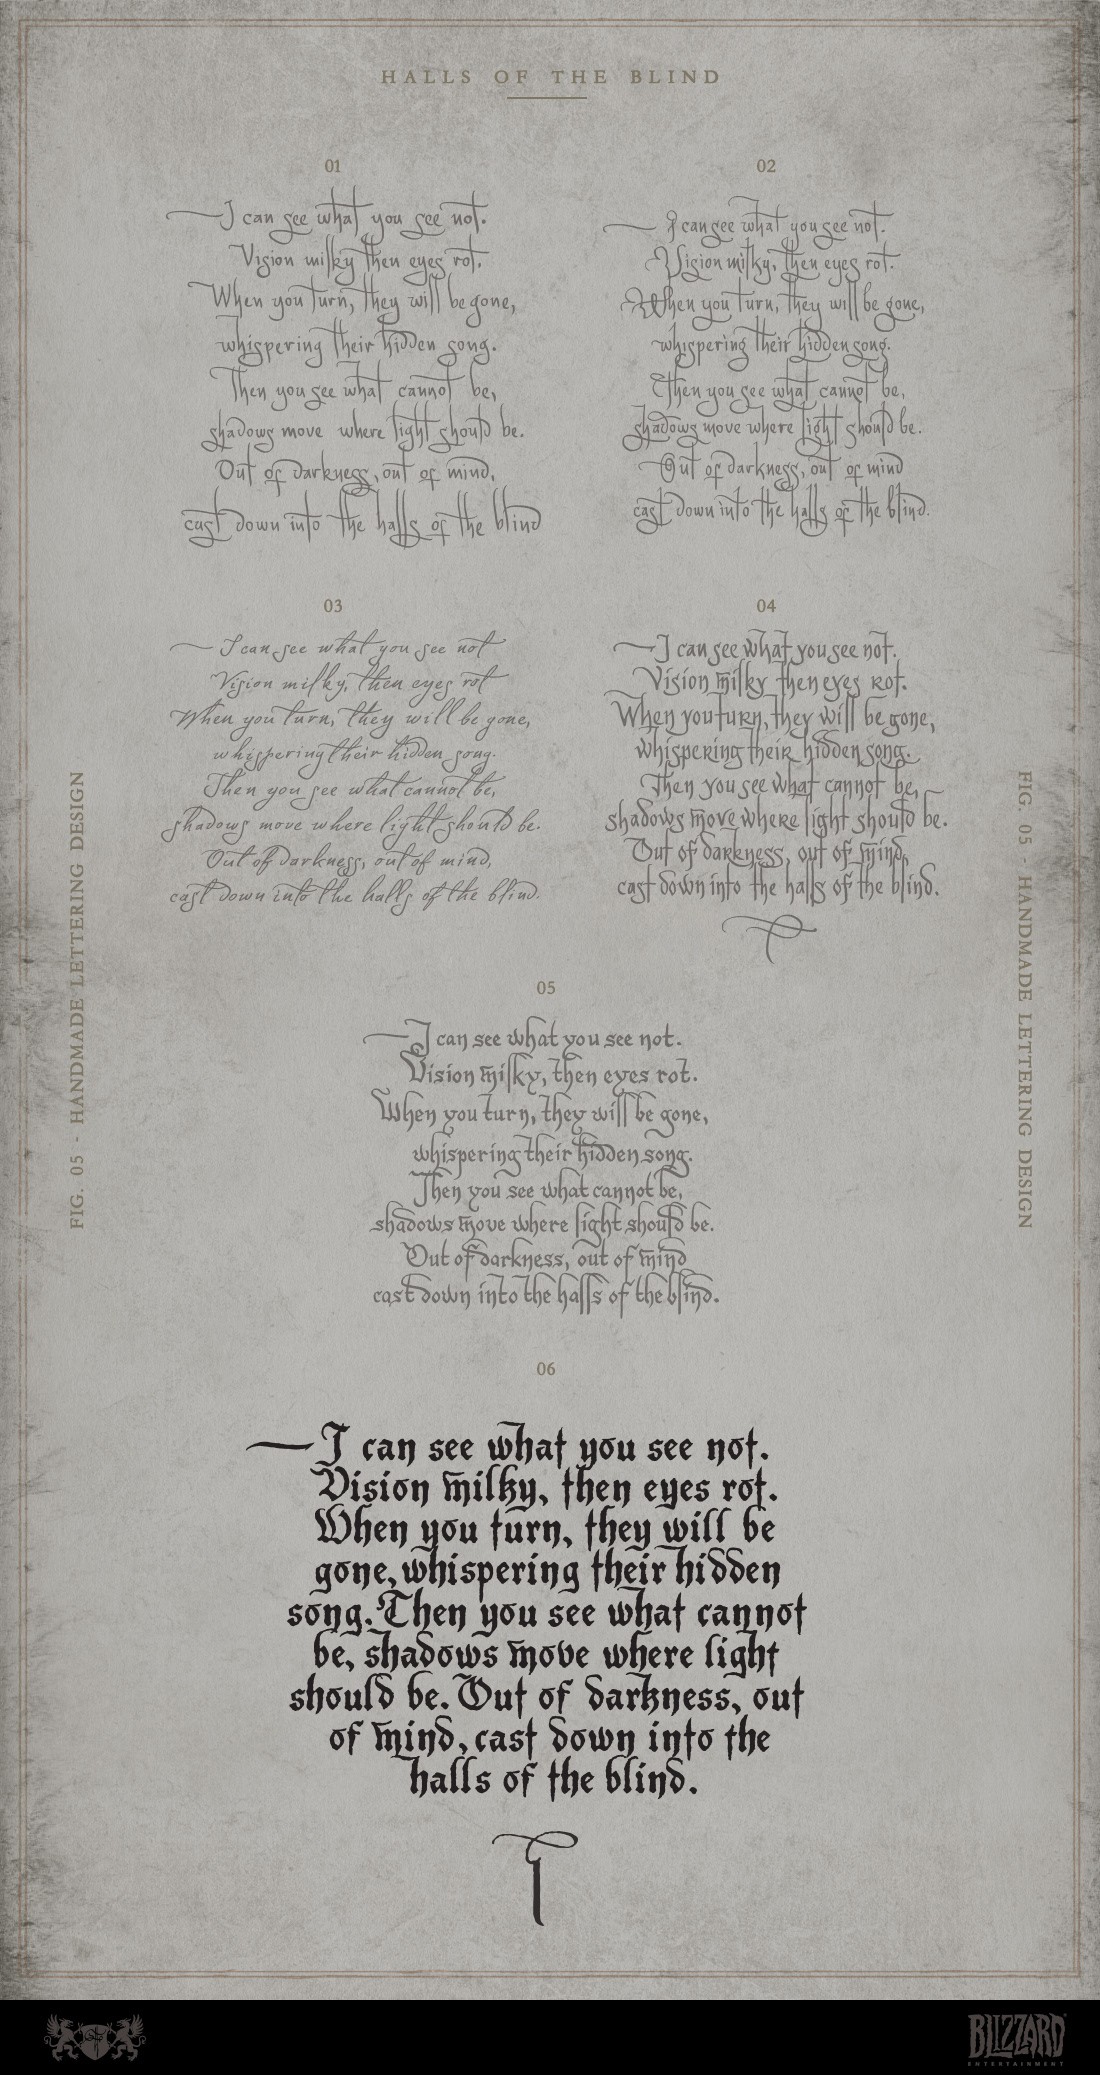 HALLS OF THE BLIND
01
I can see what you see not.
Vision milky then eyes rot.
When you turn, they will be gone,
whispering their hidden song.
Then you see what cannot be,
shadows move where light should be.
Out of darkness, out of mind,
cast down into the halls of the blind
02
I can see what you see not.
Vision milky, then eyes rot.
When you turn, they will be gone,
whispering their hidden song.
Then you see what cannot be,
shadows move where light should be.
Out of darkness, out of mind
cast down into the halls of the blind.
03
I can see what you see not
Vision milky, then eyes rot
When you turn, they will be gone,
whispering their hidden song.
Then you see what cannot be,
shadows move where light should be.
Out of darkness, out of mind,
cast down into the halls of the blind.
04
I can see what you see not.
Vision milky then eyes rot.
When you turn, they will be gone,
whispering their hidden song.
Then you see what cannot be,
shadows move where light should be.
Out of darkness, out of mind,
cast down into the halls of the blind.
FIG. 05 - HANDMADE LETTERING DESIGN
FIG. 05 - HANDMADE LETTERING DESIGN
05
I can see what you see not.
Vision milky, then eyes rot.
When you turn, they will be gone,
whispering their hidden song.
Then you see what cannot be,
shadows move where light should be.
Out of darkness, out of mind
cast down into the halls of the blind.
06
I can see what you see not.
Vision milky, then eyes rot.
When you turn, they will be
gone, whispering their hidden
song. Then you see what cannot
be, shadows move where light
should be. Out of darkness, out
of mind, cast down into the
halls of the blind.
BLIZZARD
ENTERTAINMENT